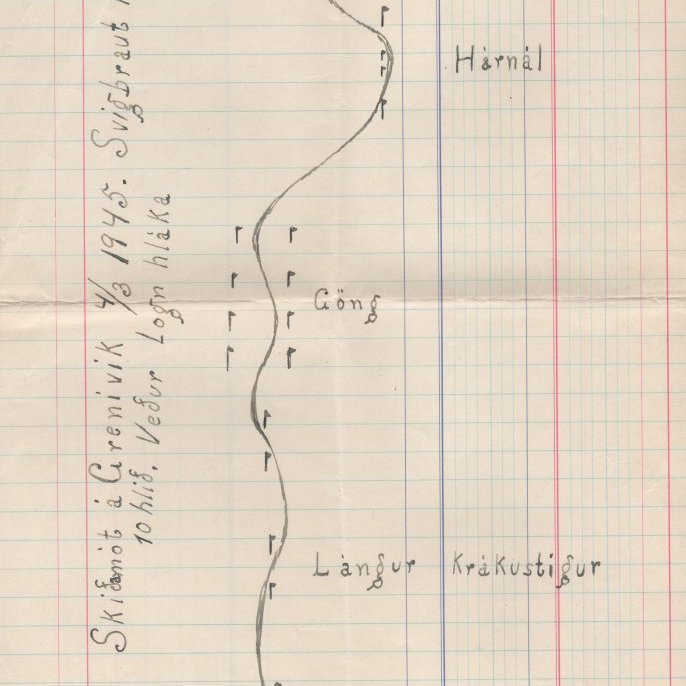 Skíðamót á Grenivík 4/3 1945. Svigbraut
10 hlið. Veður Logn hláka
Hárnál
Göng
Lángur Krákustígur